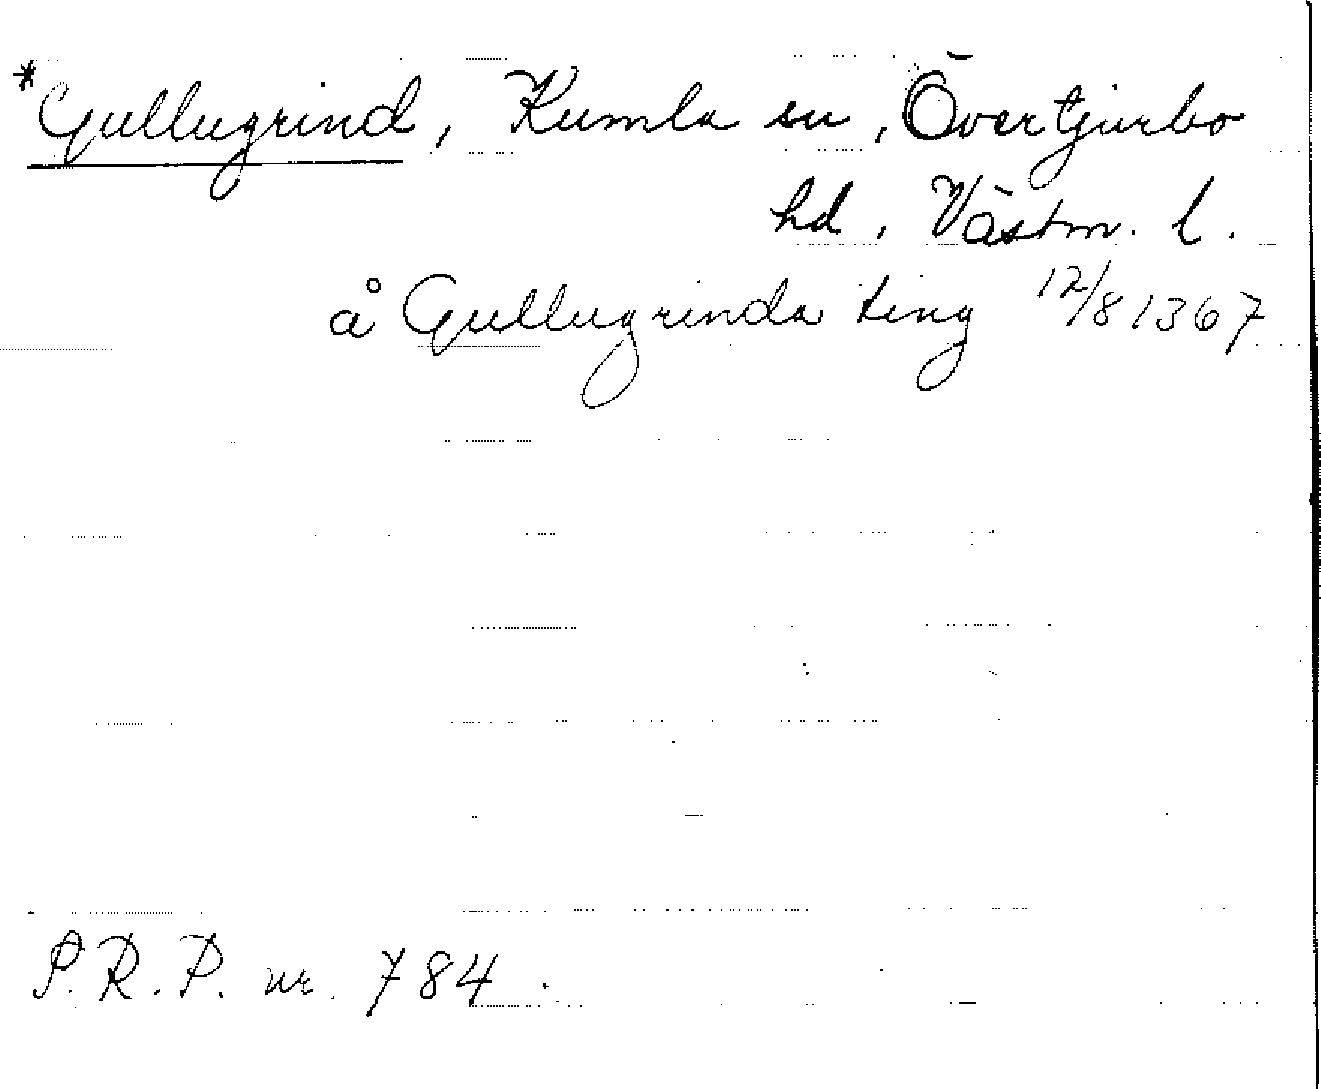 *Gullugrind, Kumla sn, Övertjurbo
hd, Västm. l.
å Gullugrinda ting 12/8 1367
S.R.P. nr. 784.